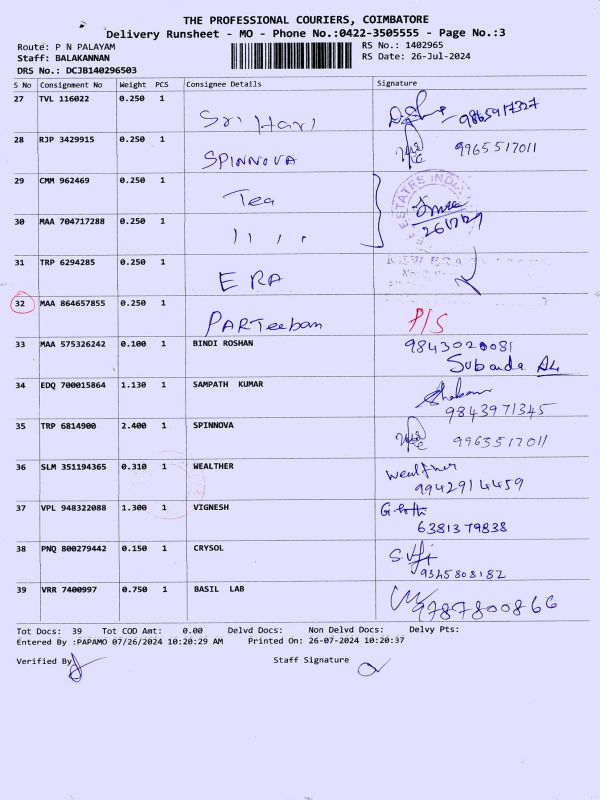 THE PROFESSIONAL COURIERS, COIMBATORE
Delivery Runsheet - MO - Phone No.:0422-3505555 - Page No.:3
Route: P N PALAYAM
RS No.: 1402965
Staff: BALAKANNAN
RS Date: 26-Jul-2024
DRS No.: DCJB140296503
S No Consignment No Weight PCS Consignee Details Signature
27 TVL 116022 0.250 1 Sri Hari 9865917327
28 RJP 3429915 0.250 1 SPINNOVA 9965517011
29 CMM 962469 0.250 1 Tea
ESTATES INDIA
30 MAA 704717288 0.250 1 " "
31 TRP 6294285 0.250 1 ERA
32 MAA 864657855 0.250 1 PARTeeban P/S
33 MAA 575326242 0.100 1 BINDI ROSHAN 9843020081
34 EDQ 700015864 1.130 1 SAMPATH KUMAR 9843971345
35 TRP 6814900 2.400 1 SPINNOVA 9965517011
36 SLM 351194365 0.310 1 WEALTHER Wealther
9942914459
37 VPL 948322088 1.300 1 VIGNESH
6381379838
38 PNQ 800279442 0.150 1 CRYSOL
9345808182
39 VRR 7400997 0.750 1 BASIL LAB 9787800866
Tot Docs: 39 Tot COD Amt: 0.00 Delvd Docs: Non Delvd Docs: Delvy Pts:
Entered By :PAPAMO 07/26/2024 10:20:29 AM Printed On: 26-07-2024 10:20:37
Verified By Staff Signature